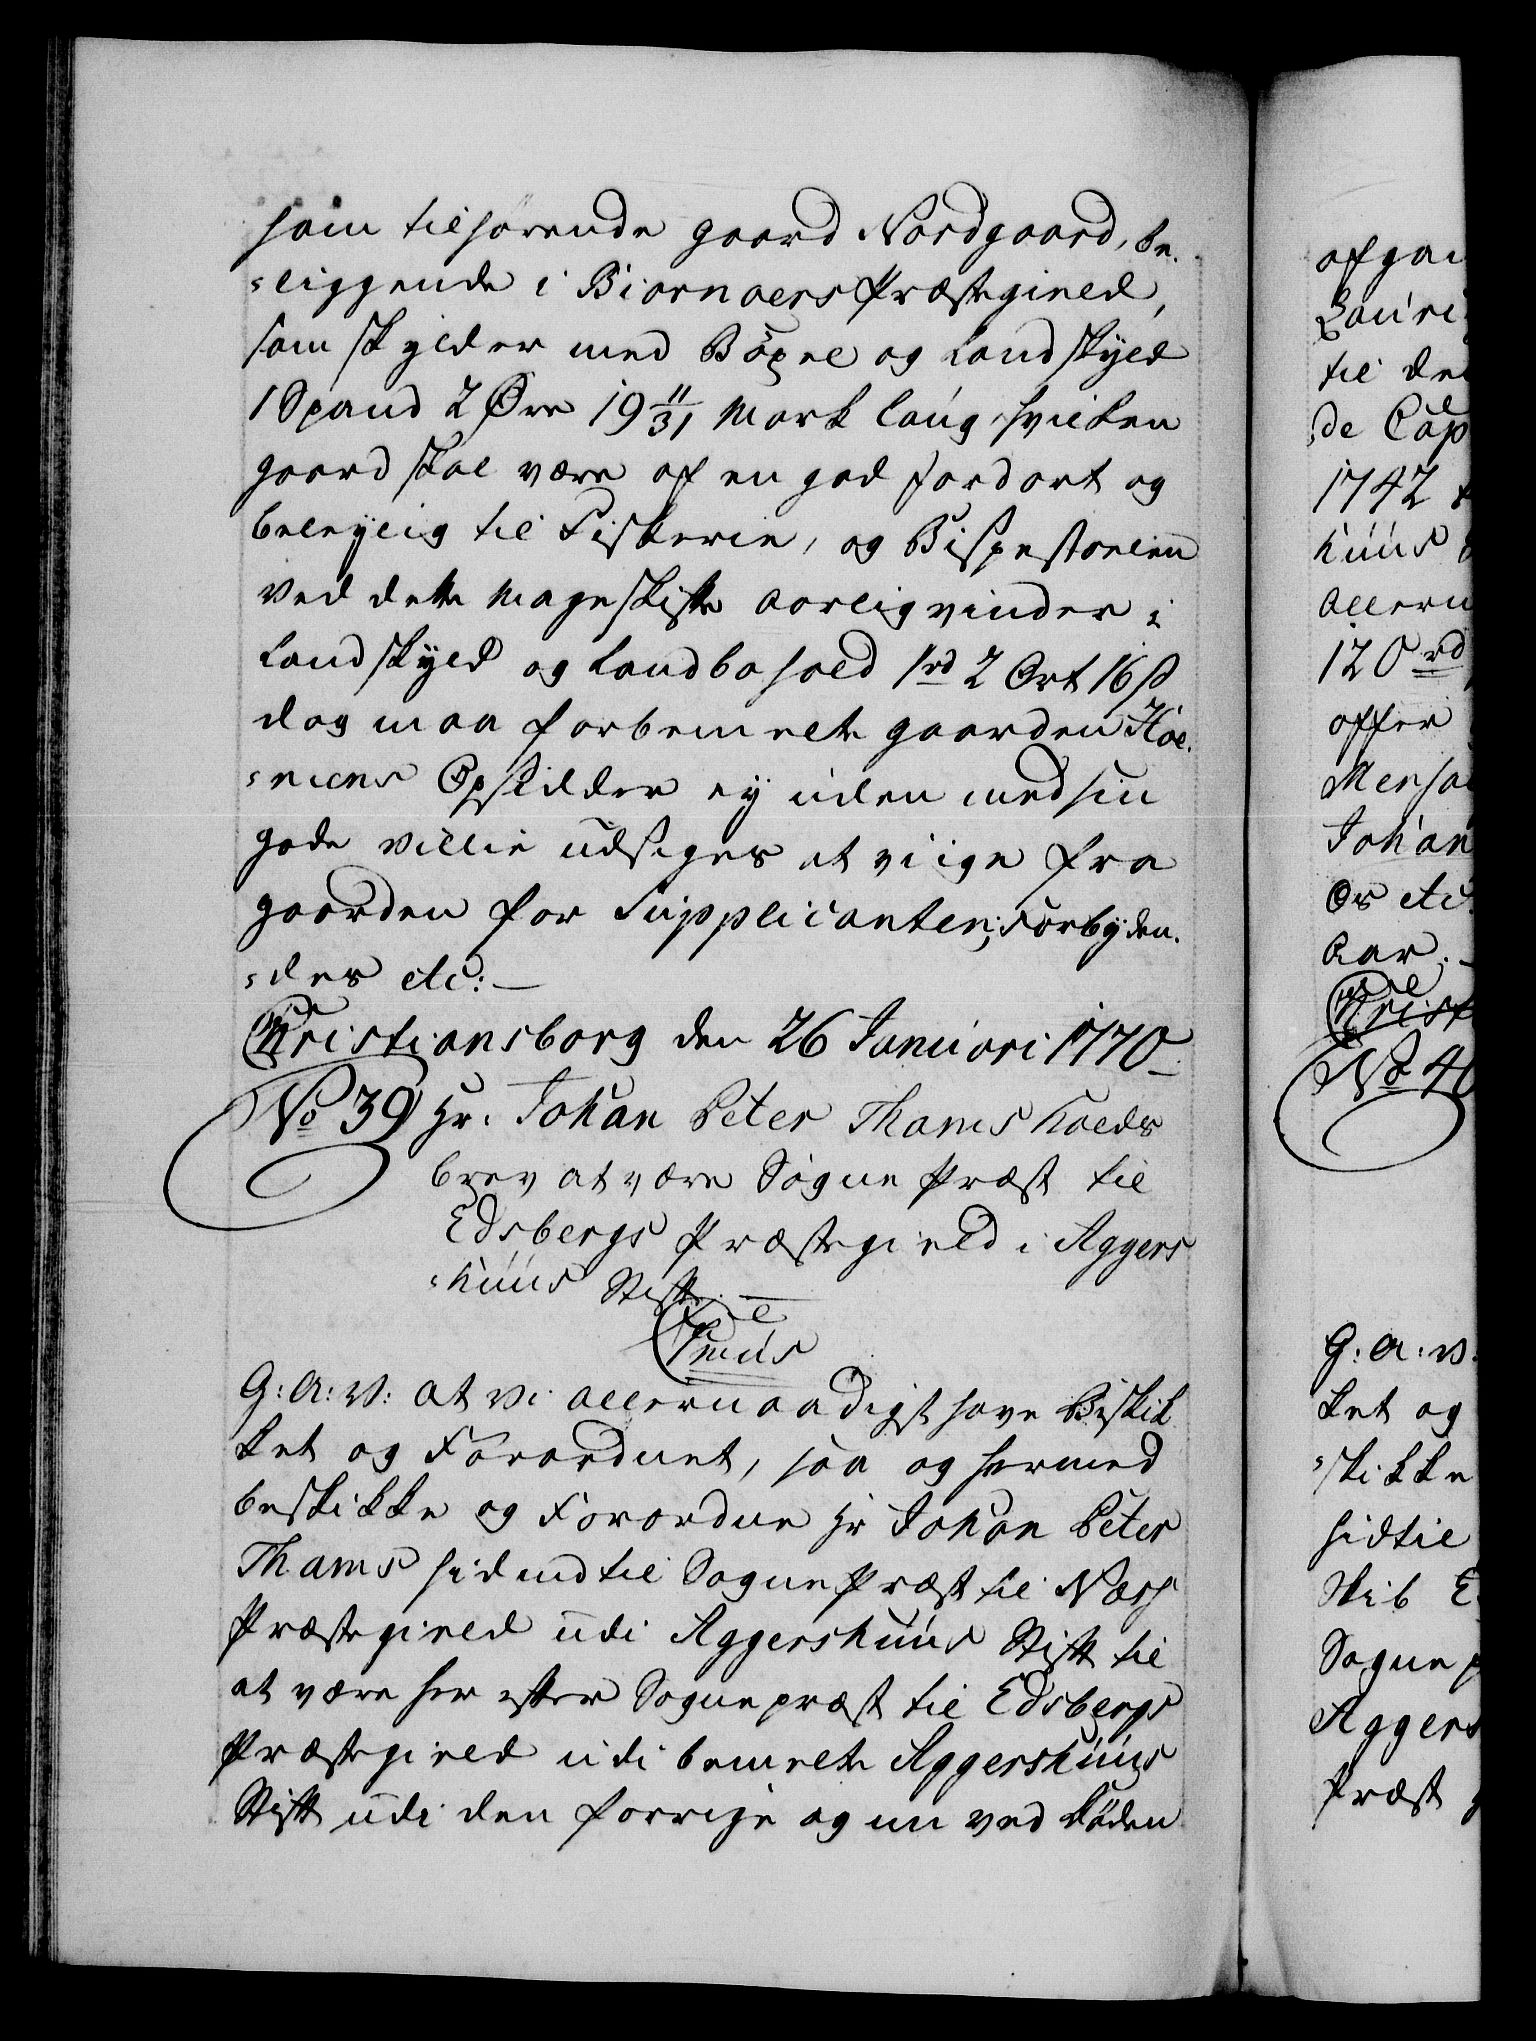 ham tilhørende gaard Nordgaard, be-
-liggende i Biørnøers Præstegield,
som skylder med Böxel og Landskyld
1 Spand 2 Øre 19 11/31 Mark laug, hvilken
gaard skal være af en god Jordart og
beleylig til Fiskerie, og Bispestoelen
ved dette Mageskifte aarlig vinder i
Landskyld og Landbohold 1 rd 2 Ort 16 ß
dog maa forbemelte gaarden
Opsidder ey uden med sin
gode villie udsiges at viige fra
gaarden for Supplicanten; Forbyden-
-des etc: —
Christiansborg den 26 Januari 1770 —
No 39 Hr. Johan Peter Thams Kalds
brev at være Sogne Præst til
Edsbergs Præstegield i Aggers
-huus Stift. —
Gratis
G: A: V: at Vi allernaadigst have Beskik
ket og Forordnet, saa og hermed
beskikke og Forordne Hr Johan Peter
Thams hidindtil Sogne Præst til Næss
Præstegield udi Aggershuus Stift til
at være her efter Sognepræst til Edsbergs
Præstegield udi bemelte Aggershuus
Stift udi den forrige og nu ved Døden
afgan
Lauri
til de
de Cap
1742
huus
Allern
120 rd
offer
Mensa
Johan
Os etc.
Aar. —
Christ
No 40
G: A: V.
ket og
-skikke
hidtil
Skib E
Sogne p
Aggers
Præst